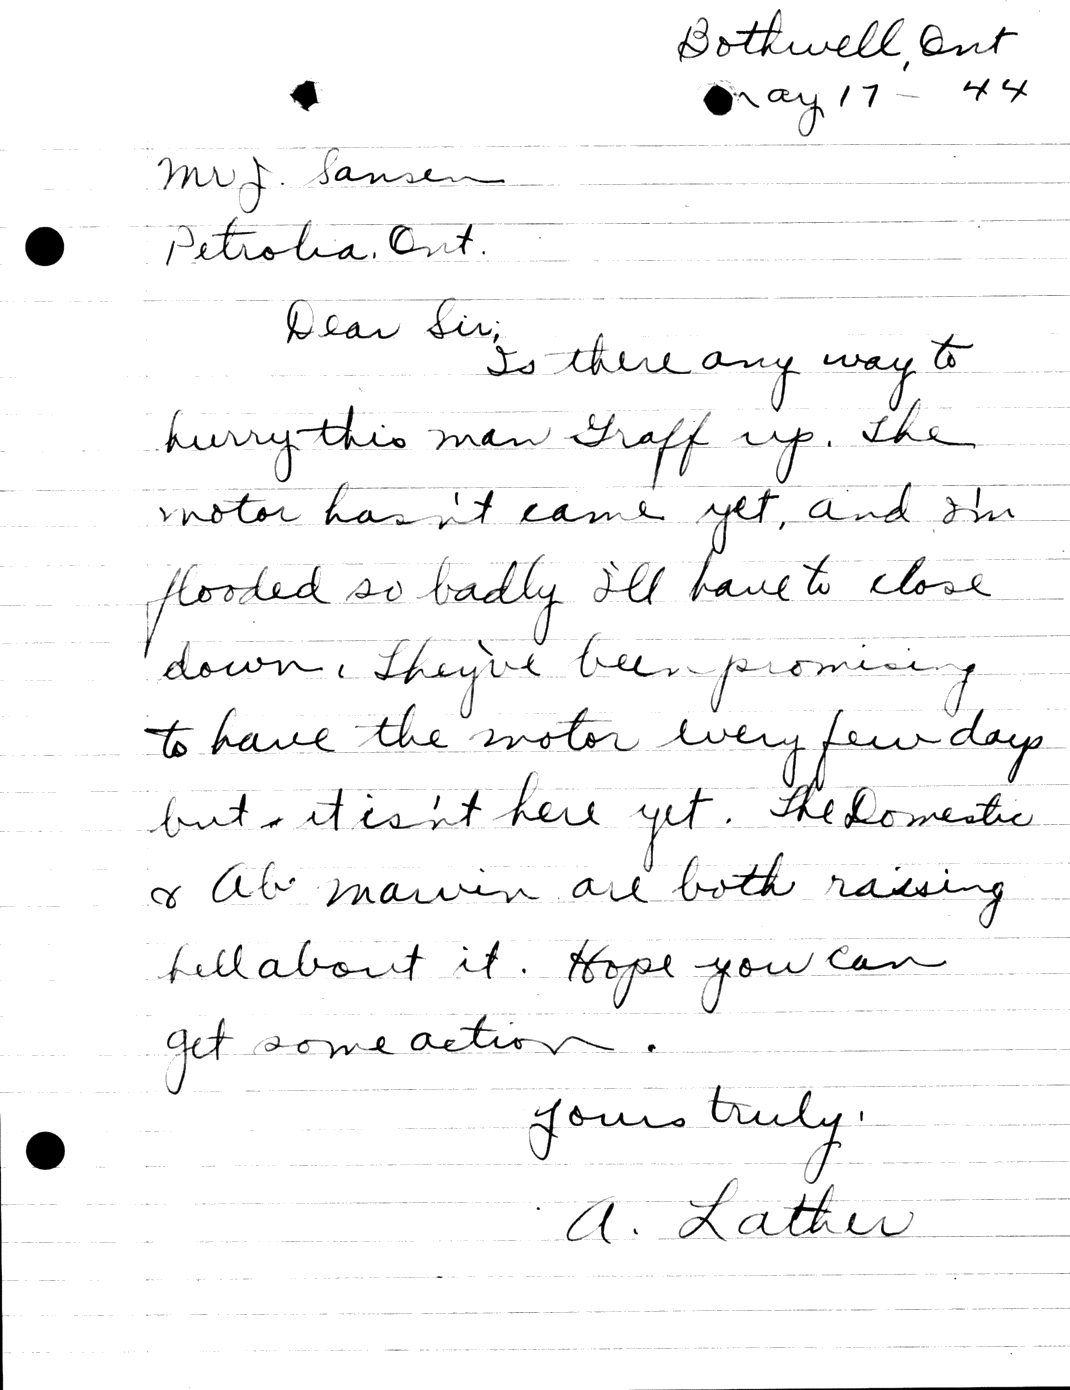 Bothwell, Ont
May 17 - 44
Mr J. Sansen
Petrolia, Ont.
Dear Sir;
Is there any way to
hurry this man Graff up. The
motor hasn't came yet, and I'm
flooded so badly I'll have to close
down. They've been promising
to have the motor every few days
but it isn't here yet. The Domestic
& Ab. Marvin are both raising
hell about it. Hope you can
get some action.
Yours truly,
A. Lather